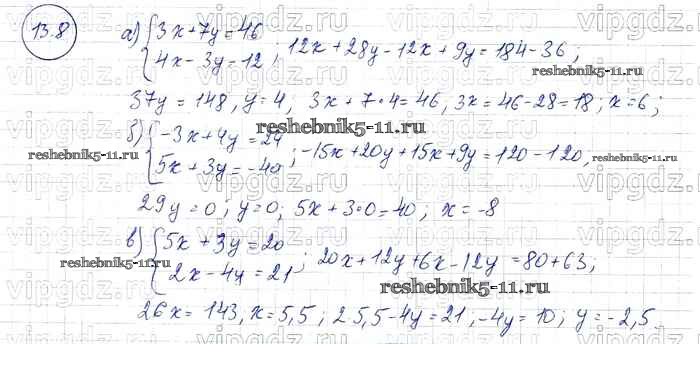 13.8
а) { 3x + 7y = 46
{ 4x - 3y = 12 ; 12x + 28y - 12x + 9y = 184 - 36 ;
37y = 148 , y = 4 , 3x + 7 · 4 = 46 , 3x = 46 - 28 = 18 ; x = 6 ;
б) { -3x + 4y = 24
{ 5x + 3y = -40 ; -15x + 20y + 15x + 9y = 120 - 120 ,
29y = 0 ; y = 0 ; 5x + 3 · 0 = -40 ; x = -8
в) { 5x + 3y = 20
{ 2x - 4y = 21 ; 20x + 12y + 6x - 12y = 80 + 63 ;
26x = 143 , x = 5,5 ; 2 5,5 - 4y = 21 , -4y = 10 ; y = -2,5
reshebnik5-11.ru
vipgdz.ru